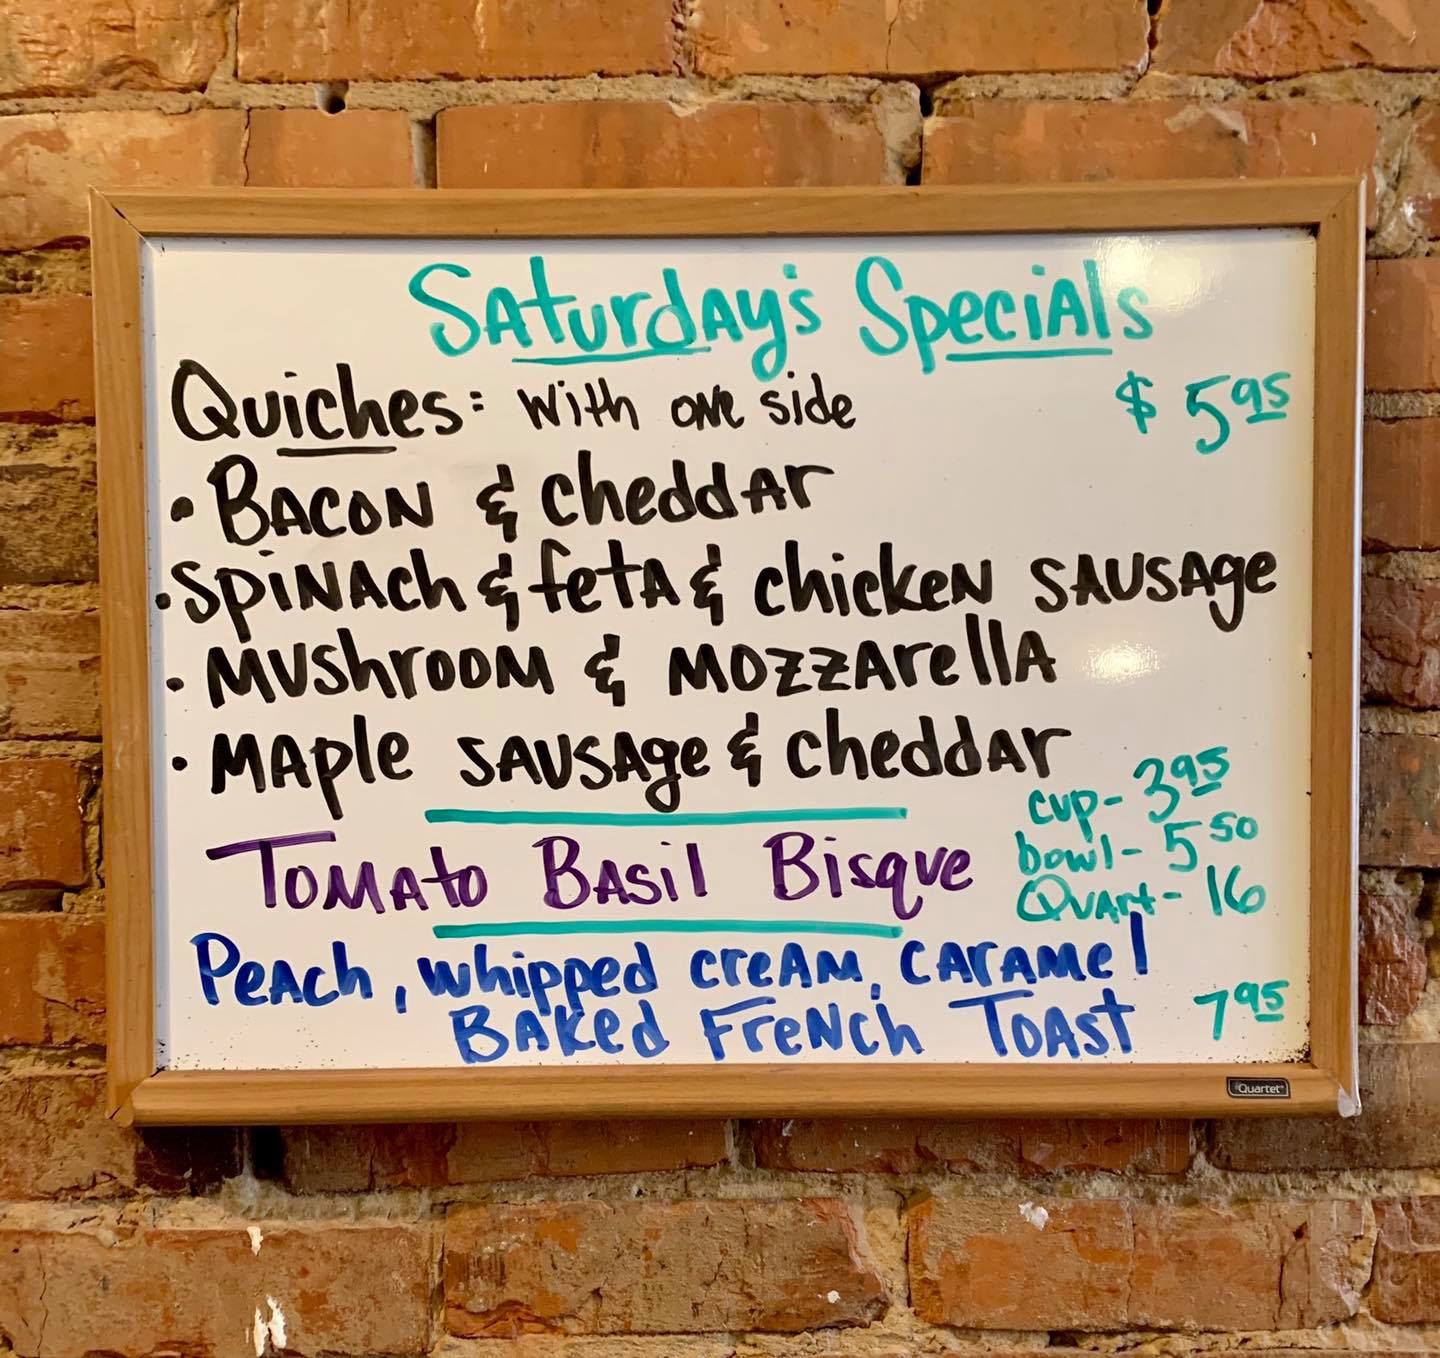 Saturday's Specials
Quiches: with one side $ 5 95
• Bacon & cheddar
• Spinach & feta & chicken sausage
• Mushroom & mozzarella
• Maple sausage & cheddar
cup- 3 95
Tomato Basil Bisque bowl- 5 50
Quart- 16
Peach, whipped cream, caramel
Baked French Toast 7 95
Quartet